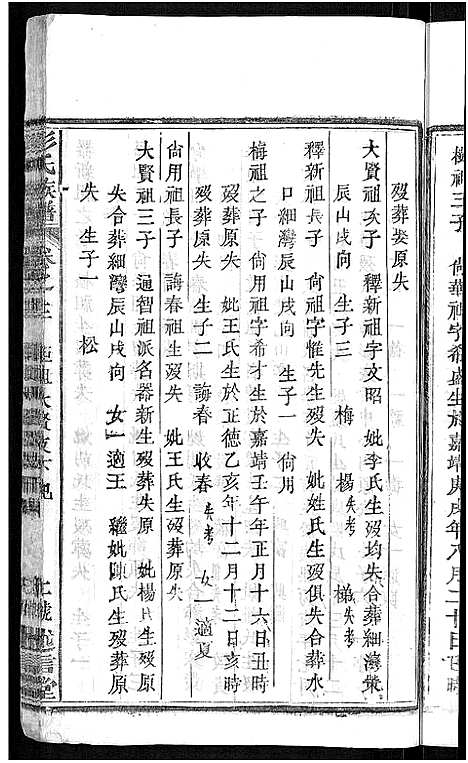 梅祖三子 尙華祖字希盛生於嘉靖庚戌年八月二十日子時
歿葬娶原失
大賢祖次子 釋新祖字文昭 妣李氏生歿均失合葬細灣眾
辰山戌向 生子三 梅 楊失考 梯失考
釋新祖長子 尙祖字惟先生歿失 妣姓氏生歿俱失合葬水
口細灣辰山戌向 生子一 尙用
梅祖之子 尙用祖字希才生於嘉靖壬午年正月十六日丑時
歿葬原失 妣王氏生於正德乙亥年十二月十二日亥時
歿葬原失 生子二 誨春 收春失考 女一適夏
尙用祖長子 誨春祖生歿失 妣王氏生歿葬原失
大賢祖三子 通智祖派名器新生歿葬失原 妣楊氏生歿原
失合葬細灣辰山戌向 女一適王 繼妣陳氏生歿葬原
失 生子一 松
彭氏族譜 卷之三 述信堂